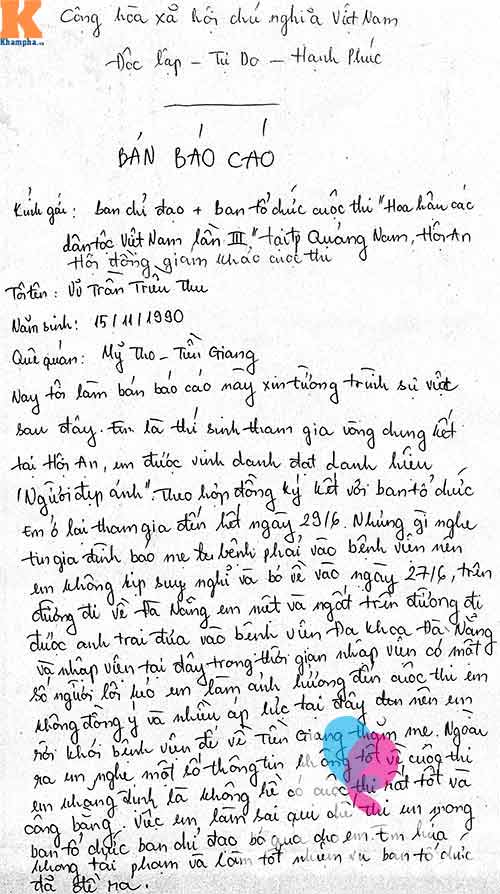 K
Khampha.vn
Cộng hòa xã hội chủ nghĩa Việt Nam
Độc lập - Tự Do - Hạnh Phúc
BẢN BÁO CÁO
Kính gửi: ban chỉ đạo + ban tổ chức cuộc thi "Hoa hậu các
dân tộc Việt Nam lần III," tại tp Quảng Nam, Hội An
Hội đồng giám khảo cuộc thi
Tôi tên: Vũ Trần Triều Thu
Năm sinh: 15/11/1990
Quê quán: Mỹ Tho - Tiền Giang
Nay tôi làm bản báo cáo này xin tường trình sự việc
sau đây. Em là thí sinh tham gia vòng chung kết
tại Hội An, em được vinh danh đạt danh hiệu
"Người đẹp ảnh". Theo hợp đồng ký kết với ban tổ chức
em ở lại tham gia đến hết ngày 29/6. Nhưng gì nghe
tin gia đình báo mẹ bệnh phải vào bệnh viện nên
em không kịp suy nghĩ và bỏ về vào ngày 27/6, trên
đường đi về Đà Nẵng em mệt và ngất trên đường đi
được anh trai đưa vào bệnh viện Đa khoa Đà Nẵng
và nhập viện tại đây trong thời gian nhập viện có một
số người lôi kéo em làm ảnh hưởng đến cuộc thi em
không đồng ý và nhiều áp lực tại đây nên em
rời khỏi bệnh viện để về Tiền Giang thăm mẹ. Ngoài
ra em nghe một số thông tin không tốt về cuộc thi
em khẳng định là không hề có cuộc thi rất tốt và
công bằng. Việc em làm sai qui chế thi em mong
ban tổ chức ban chỉ đạo bỏ qua cho em em hứa
không tái phạm và làm tốt nhiệm vụ ban tổ chức
đã đề ra.